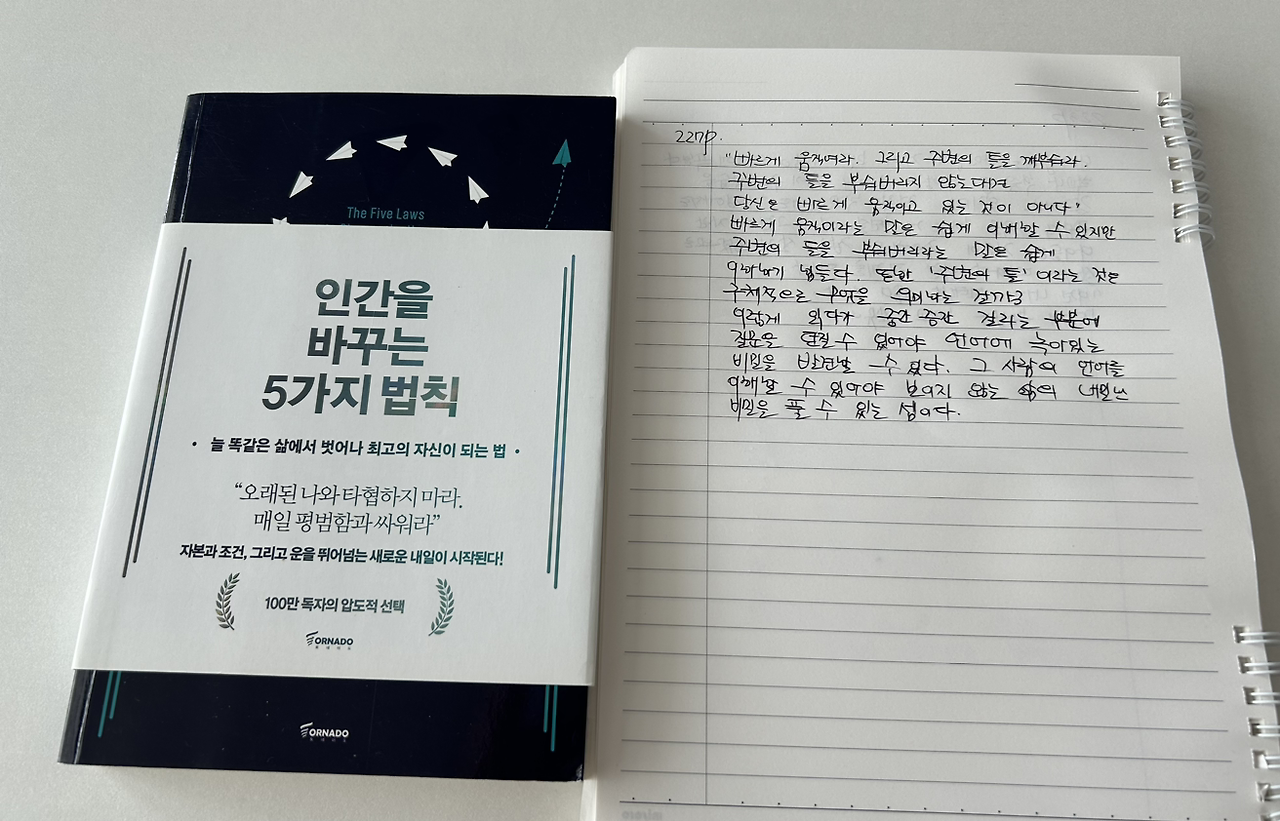 The Five Laws
인간을
바꾸는
5가지 법칙
• 늘 똑같은 삶에서 벗어나 최고의 자신이 되는 법 •
“오래된 나와 타협하지 마라.
매일 평범함과 싸워라”
자본과 조건, 그리고 운을 뛰어넘는 새로운 내일이 시작된다!
100만 독자의 압도적 선택
TORNADO
토네이도
TORNADO
토네이도
227p.
"빠르게 움직여라. 그리고 주변의 틀을 깨부숴라.
주변의 틀을 부숴버리지 않는다면
당신은 빠르게 움직이고 있는 것이 아니다"
빠르게 움직이라는 말은 쉽게 이해할 수 있지만
주변의 틀을 부숴버리라는 말은 쉽게
이해하기 힘들다. 또한 '주변의 틀' 이라는 것은
구체적으로 무엇을 의미하는 걸까?
이렇게 읽다가 중간 중간 걸리는 부분에
질문을 던질 수 있어야 언어에 녹아있는
비밀을 발견할 수 있다. 그 사람의 언어를
이해할 수 있어야 보이지 않는 삶의
비밀을 풀 수 있는 셈이다.